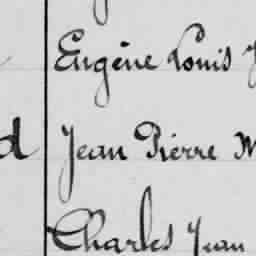 Eugène Louis J
d Jean Pierre M
Charles Jean